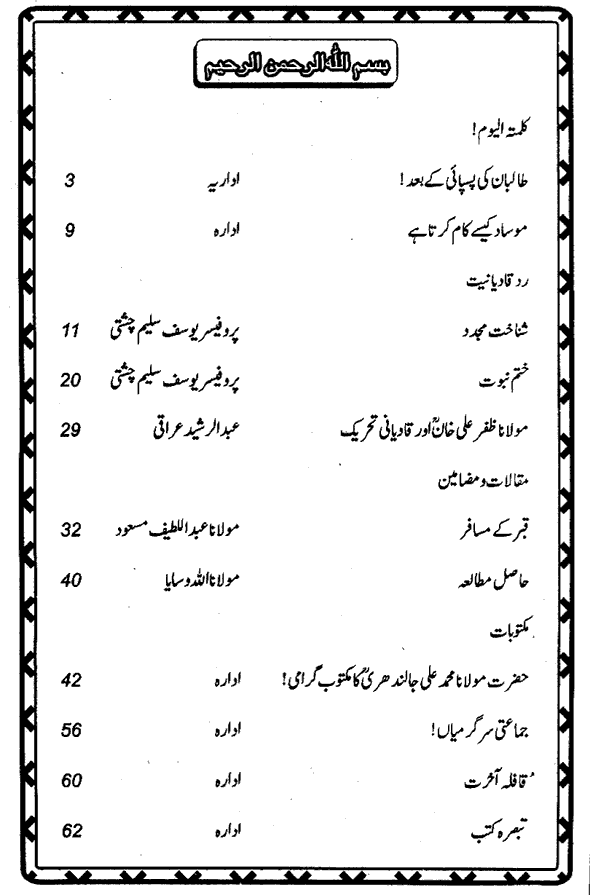 بسم اللہ الرحمن الرحیم
کلمتہ الیوم!
طالبان کی پسپائی کے بعد! اداریہ 3
موساد کیسے کام کرتا ہے ادارہ 9
رد قادیانیت
شناخت مجدد پروفیسر یوسف سلیم چشتی 11
ختم نبوت پروفیسر یوسف سلیم چشتی 20
مولانا ظفر علی خانؒ اور قادیانی تحریک عبدالرشید عراقی 29
مقالات و مضامین
قبر کے مسافر مولانا عبداللطیف مسعود 32
حاصل مطالعہ مولانا اللہ وسایا 40
مکتوبات
حضرت مولانا محمد علی جالندھریؒ کا مکتوب گرامی! ادارہ 42
جماعتی سرگرمیاں! ادارہ 56
قافلہ آخرت ادارہ 60
تبصرہ کتب ادارہ 62